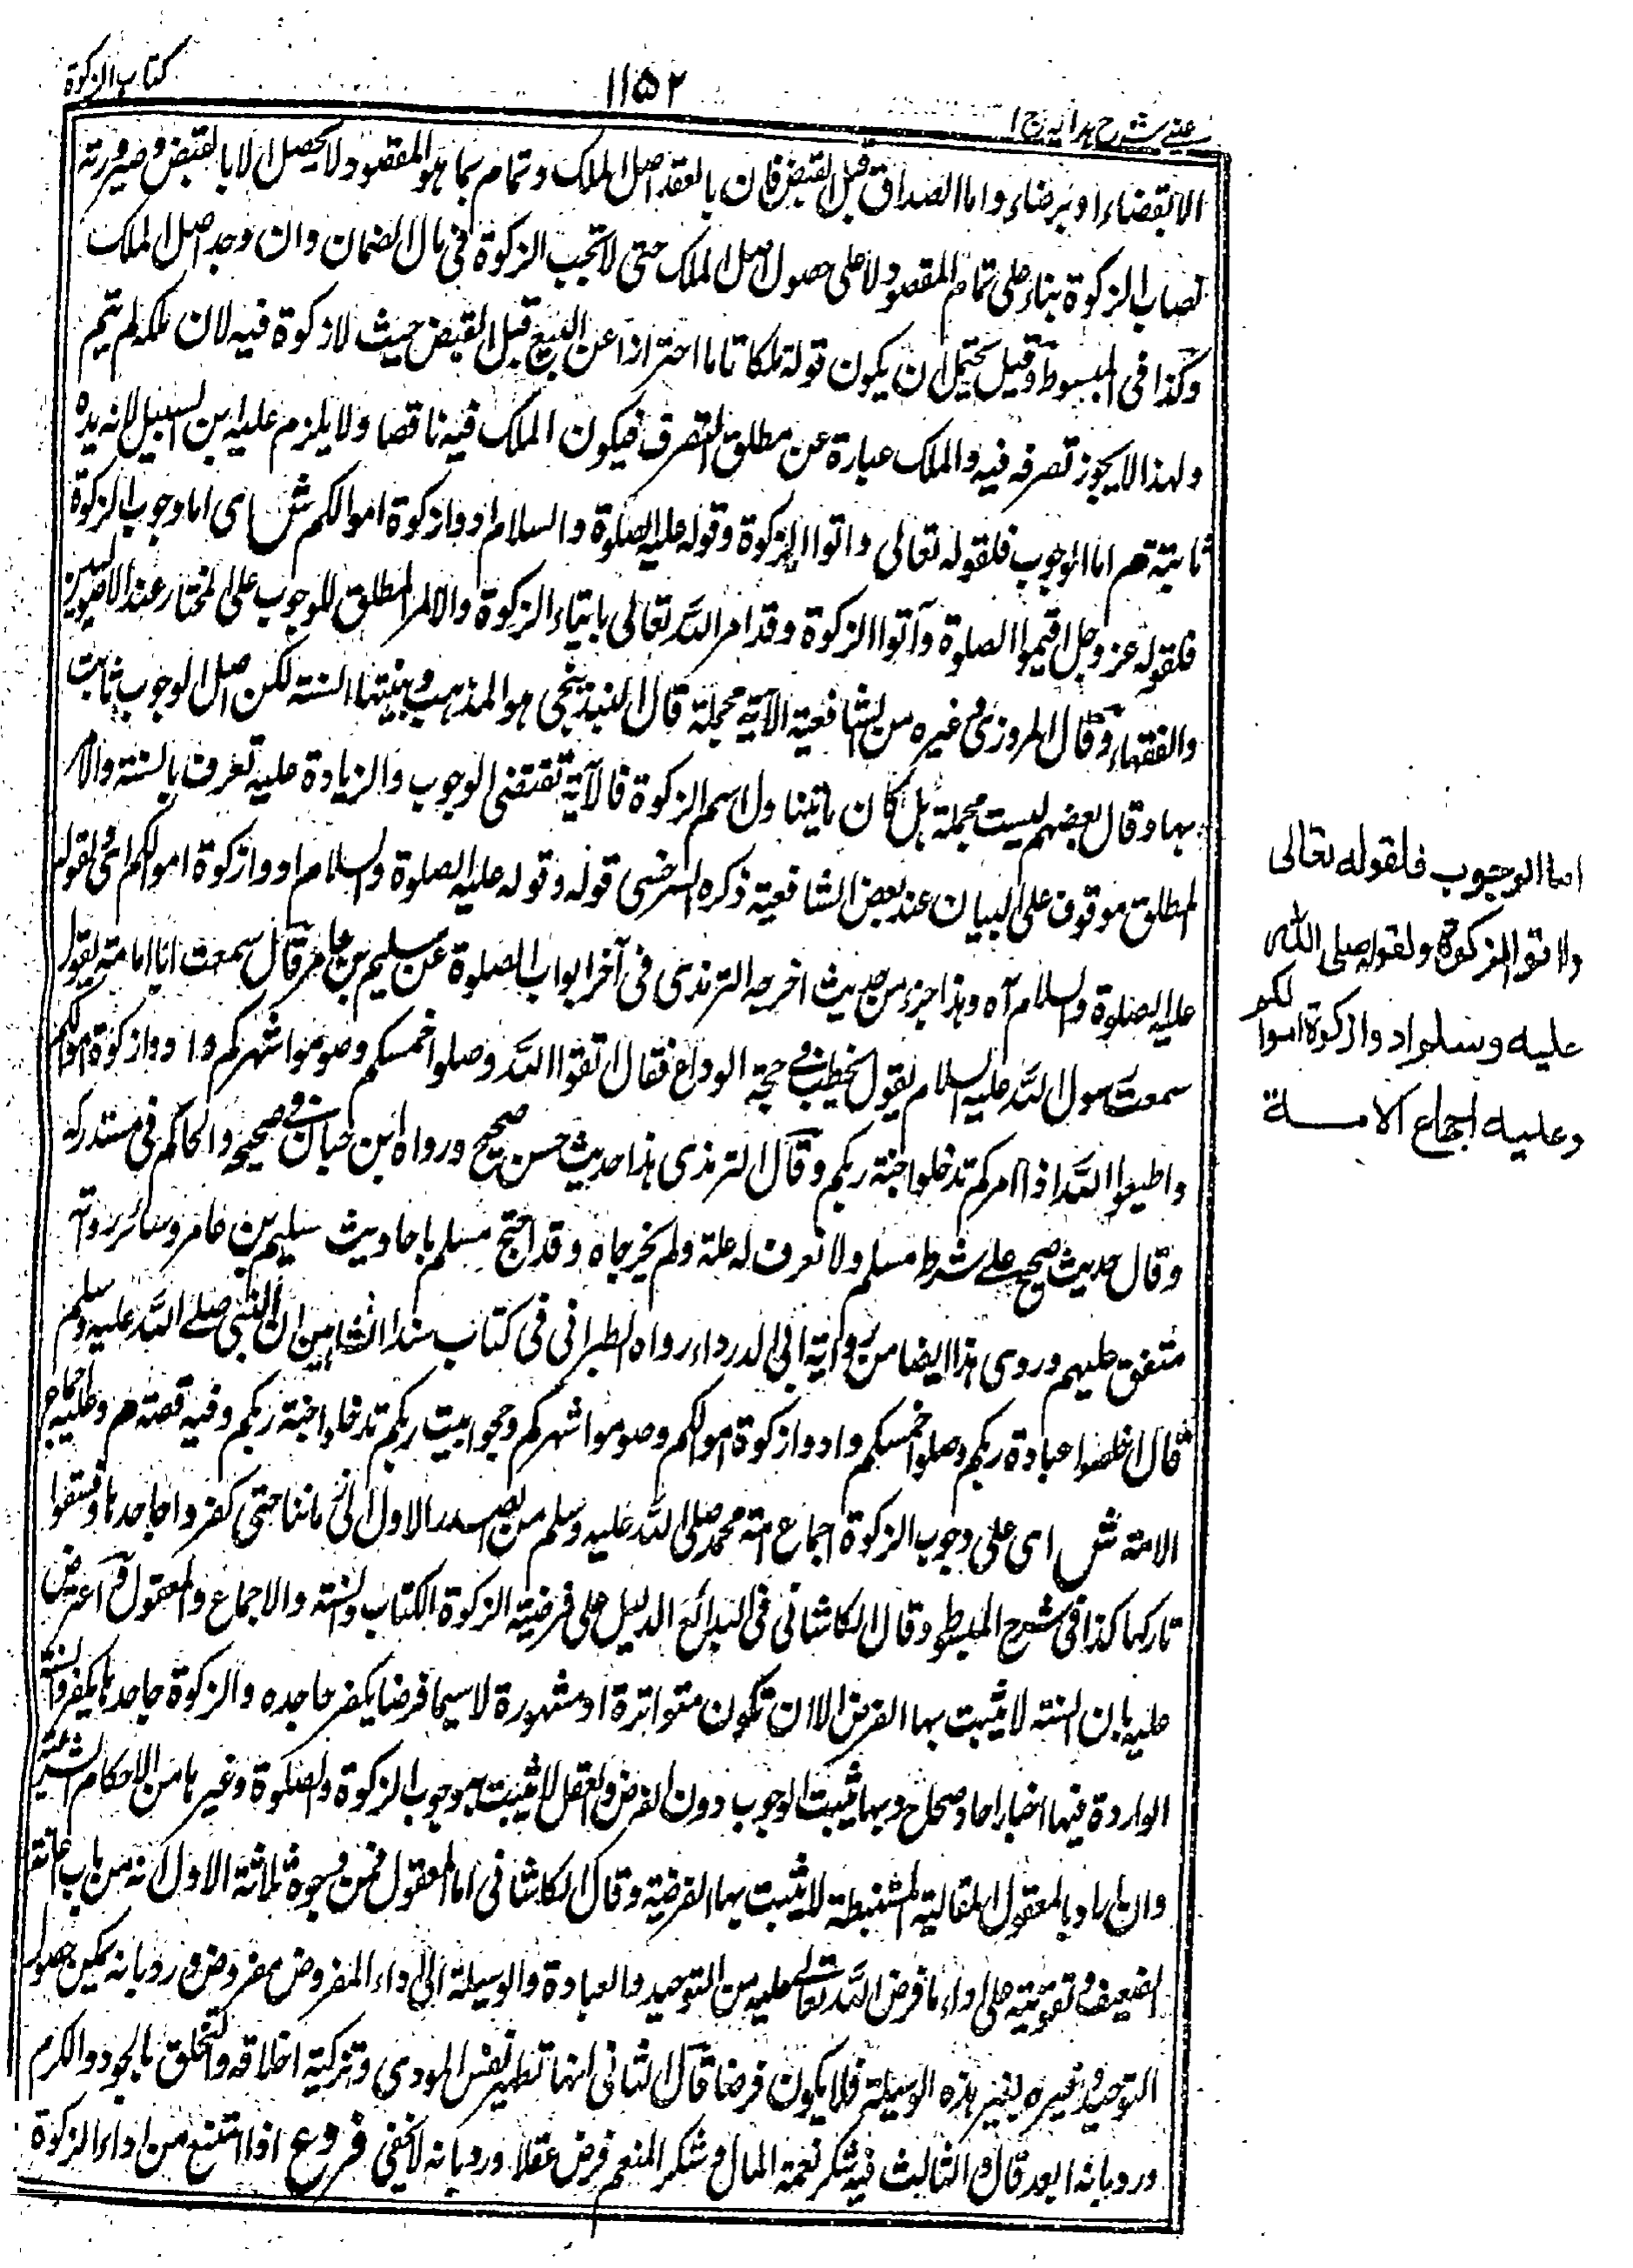 كتاب الزكوة
١١٥٢
عینی شرح ہدایہ ج ا
الا بقضاء او برضاء واما الصداق قبل القبض فان بالعقد اصل الملك وتمام بما هو المقصود لا يحصل الا بالقبض وصيرورته
نصاب الزكوة بناء على تمام المقصود لا على حصول اصل الملك حتى لا تجب الزكوة فى مال الضمان وان وجد اصل الملك
وكذا فى المبسوط وقيل يحتمل ان يكون قوله ملكا تاما احترازا عن البيع قبل القبض حيث لا زكوة فيه لان ملكه لم يتم
ولهذا لا يجوز تصرفه فيه والملك عبارة عن مطلق التصرف فيكون الملك فيه ناقصا ولا يلزم عليه ابن السبيل لانه يده
ثابتة هم اما الوجوب فلقوله تعالى واتوا الزكوة وقوله عليه الصلوة والسلام ادوا زكوة اموالكم ش اى اما وجوب الزكوة
فلقوله عز وجل اقيموا الصلوة وآتوا الزكوة وقد امر الله تعالى بايتاء الزكوة والامر المطلق للوجوب على المختار عند الاصوليين
والفقهاء وقال المروزى وغيره من الشافعية الآية مجملة قال البندنيجى هو المذهب وبينتها السنة لكن اصل الوجوب ثابت
بها وقال بعضهم ليست مجملة بل كان ما يتناول اسم الزكوة فالآية تقتضى الوجوب والزيادة عليه تعرف بالسنة والامر
المطلق موقوف على البيان عند بعض الشافعية ذكره السرخسى قوله وقوله عليه الصلوة والسلام ادوا زكوة اموالكم اى ولقوله
عليه الصلوة والسلام آه وهذا جزء من حديث اخرجه الترمذى فى آخر ابواب الصلوة عن سليم بن عامر قال سمعت ابا امامة يقول
سمعت رسول الله عليه السلام يقول يخطب فى حجة الوداع فقال اتقوا الله وصلوا خمسكم وصوموا شهركم وادوا زكوة اموالكم
واطيعوا الله اذا امركم تدخلوا جنة ربكم وقال الترمذى هذا حديث حسن صحيح ورواه ابن حبان فى صحيحه والحاكم فى مستدركه
وقال حديث صحيح على شرط مسلم ولا نعرف له علة ولم يخرجاه وقد احتج مسلم باحاديث سليم بن عامر وسائر رواته
متفق عليهم وروى هذا ايضا من رواية ابى الدرداء رواه الطبرانى فى كتاب مسند الشاميين ان النبى صلى الله عليه وسلم
قال اخلصوا عبادة ربكم وصلوا خمسكم وادوا زكوة اموالكم وصوموا شهركم وحجوا بيت ربكم تدخلوا جنة ربكم وفيه قصة هم وعليه اجماع
الامة ش اى على وجوب الزكوة اجماع امة محمد صلى الله عليه وسلم من الصدر الاول الى زماننا حتى كفروا جاحدها وفسقوا
تاركها كذا فى شرح المبسوط وقال الكاشانى فى البدائع الدليل على فرضية الزكوة الكتاب والسنة والاجماع والمعقول آعترض
عليه بان السنة لا يثبت بها الفرض الا ان تكون متواترة او مشهورة لا سيما فرضا يكفر جاحده والزكوة جاحدها يكفر والسنة
الواردة فيها اخبار احاد صحاح وبها يثبت الوجوب دون الفرض والعقل لا يثبت به وجوب الزكوة والصلوة وغيرها من الاحكام الشرعية
وان اراد بالمعقول المقالية المستنبطة لا يثبت بها الفرضية وقال الكاشانى اما المعقول فمن وجوه ثلاثة الاول انه من باب اعانة
الضعيف وتقويته على اداء ما فرض الله تعالى عليه من التوحيد والعبادة والوسيلة الى اداء المفروض مفروض ورد بانه يمكن حصول
التوحيد وغيره بغير هذه الوسيلة فلا يكون فرضا قال الثانى انها تطهر نفس المودى وتزكية اخلاقه والتخلق بالجود والكرم
ورد بانه ابعد قال والثالث فيه شكر نعمة المال وشكر المنعم فرض عقلا ورد بانه لا يخفى فروع اذا امتنع من اداء الزكوة
اما الوجوب فلقوله تعالى
واتوا الزكوة ولقوله صلى الله
عليه وسلم ادوا زكوة اموالكم
وعليه اجماع الامة